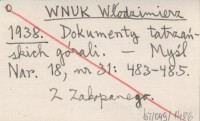 WNUK Włodzimierz
1938. Dokumenty tatrzań-
skich górali. — Myśl
Nar. 18, nr 31: 483-485.
Z Zakopanego.